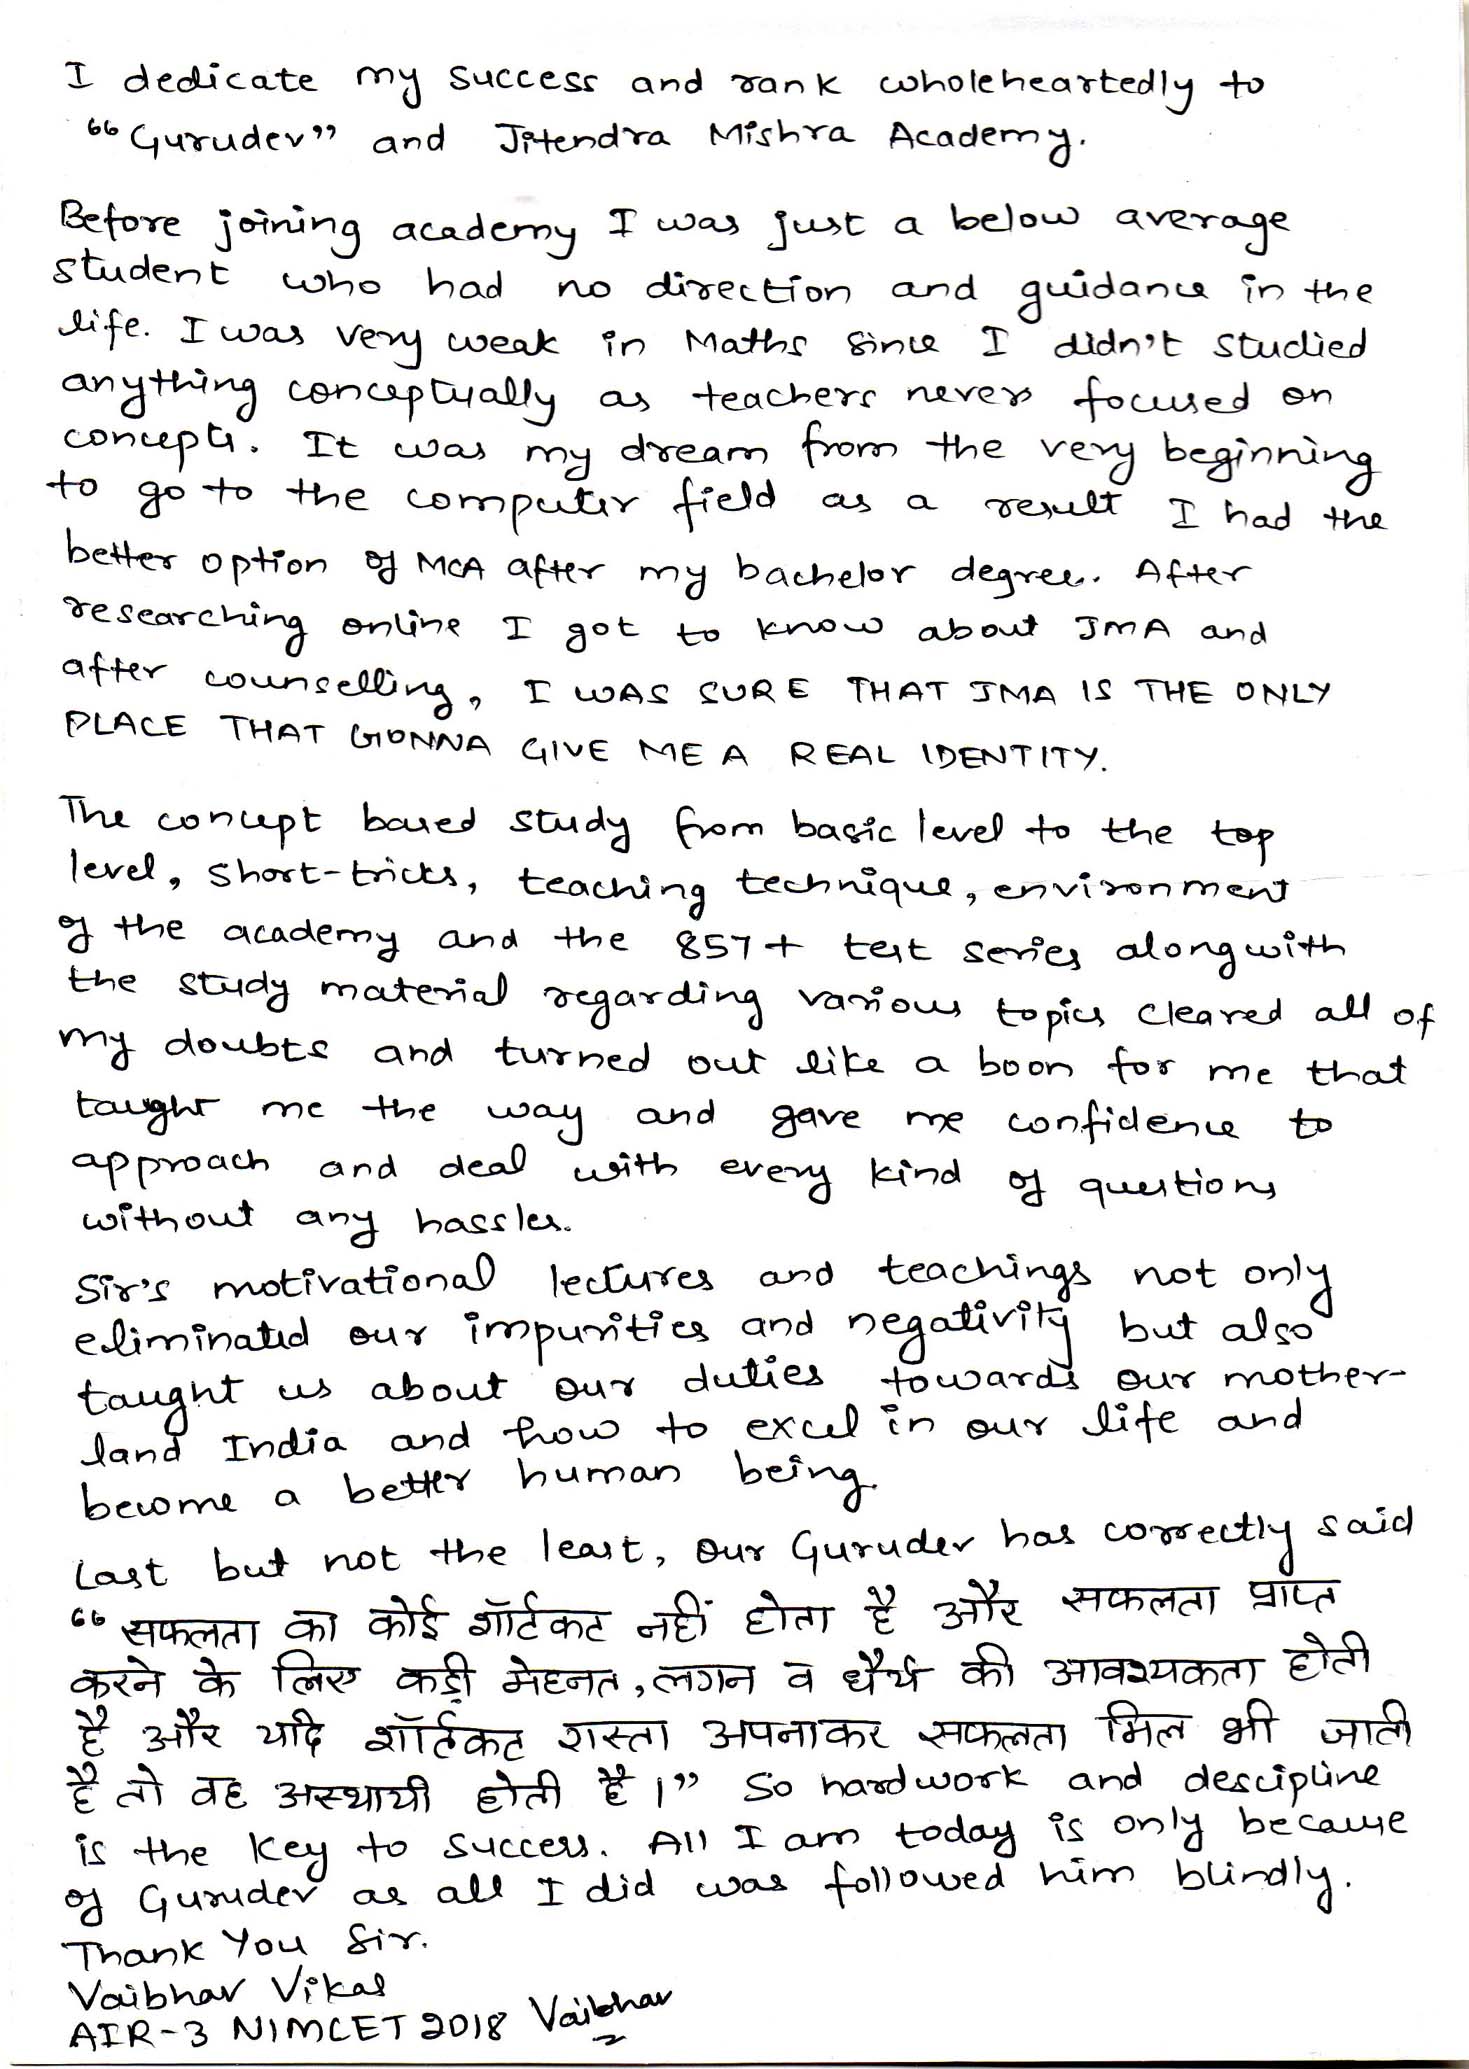 I dedicate my success and rank wholeheartedly to
"Gurudev" and Jitendra Mishra Academy.
Before joining academy I was just a below average
student who had no direction and guidance in the
life. I was very weak in Maths since I didn't studied
anything conceptually as teachers never focused on
concepts. It was my dream from the very beginning
to go to the computer field as a result I had the
better option of MCA after my bachelor degree. After
researching online I got to know about JMA and
after counselling, I WAS SURE THAT JMA IS THE ONLY
PLACE THAT GONNA GIVE ME A REAL IDENTITY.
The concept based study from basic level to the top
level, short-tricks, teaching technique, environment
of the academy and the 857+ test series alongwith
the study material regarding various topics cleared all of
my doubts and turned out like a boon for me that
taught me the way and gave me confidence to
approach and deal with every kind of questions
without any hassles.
Sir's motivational lectures and teachings not only
eliminated our impurities and negativity but also
taught us about our duties towards our mother-
land India and how to excel in our life and
become a better human being.
Last but not the least, our Gurudev has correctly said
"सफलता का कोई शॉर्टकट नहीं होता है और सफलता प्राप्त
करने के लिए कड़ी मेहनत, लगन व धैर्य की आवश्यकता होती
है और यदि शॉर्टकट रास्ता अपनाकर सफलता मिल भी जाती
है तो वह अस्थायी होती है।" So hardwork and descipline
is the key to success. All I am today is only because
of Gurudev as all I did was followed him blindly.
Thank You Sir.
Vaibhav Vikas
AIR-3 NIMCET 2018 Vaibhav